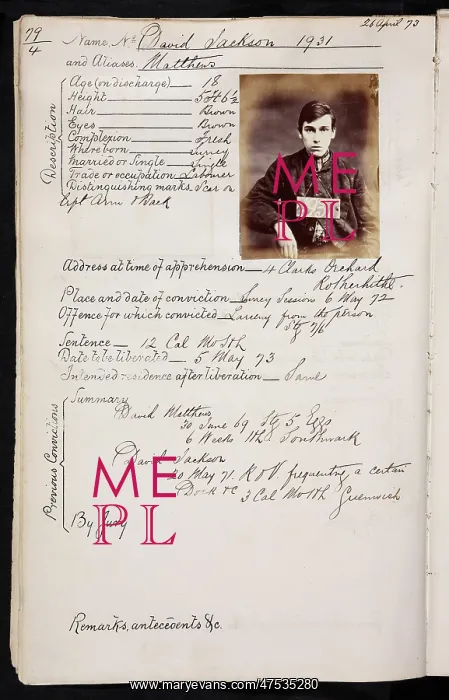 79/4
26 April 73
Name, No. David Jackson 1931
and Aliases. Matthews
Description
Age (on discharge) 18
Height 5 ft 6½
Hair Brown
Eyes Brown
Complexion Fresh
Where born Surrey
Married or Single Single
Trade or occupation Labourer
Distinguishing marks Scar on
left Arm & Back
MEPL
Address at time of apprehension 4 Clarks Orchard
Rotherhithe.
Place and date of conviction Surrey Sessions 6 May 72
Offence for which convicted Larceny from the person
Stg 7/6
Sentence 12 Cal Mos
Date to be liberated 5 May 73
Intended residence after liberation Same
Previous Convictions
Summary
David Matthews
30 June 69 Stg 5 Eggs
6 Weeks Southwark
David Jackson
May 71. R & V. frequenting a certain
Dock &c 3 Cal Mos Greenwich
MEPL
By Jury
Remarks, antecedents &c.
www.maryevans.com/47535280